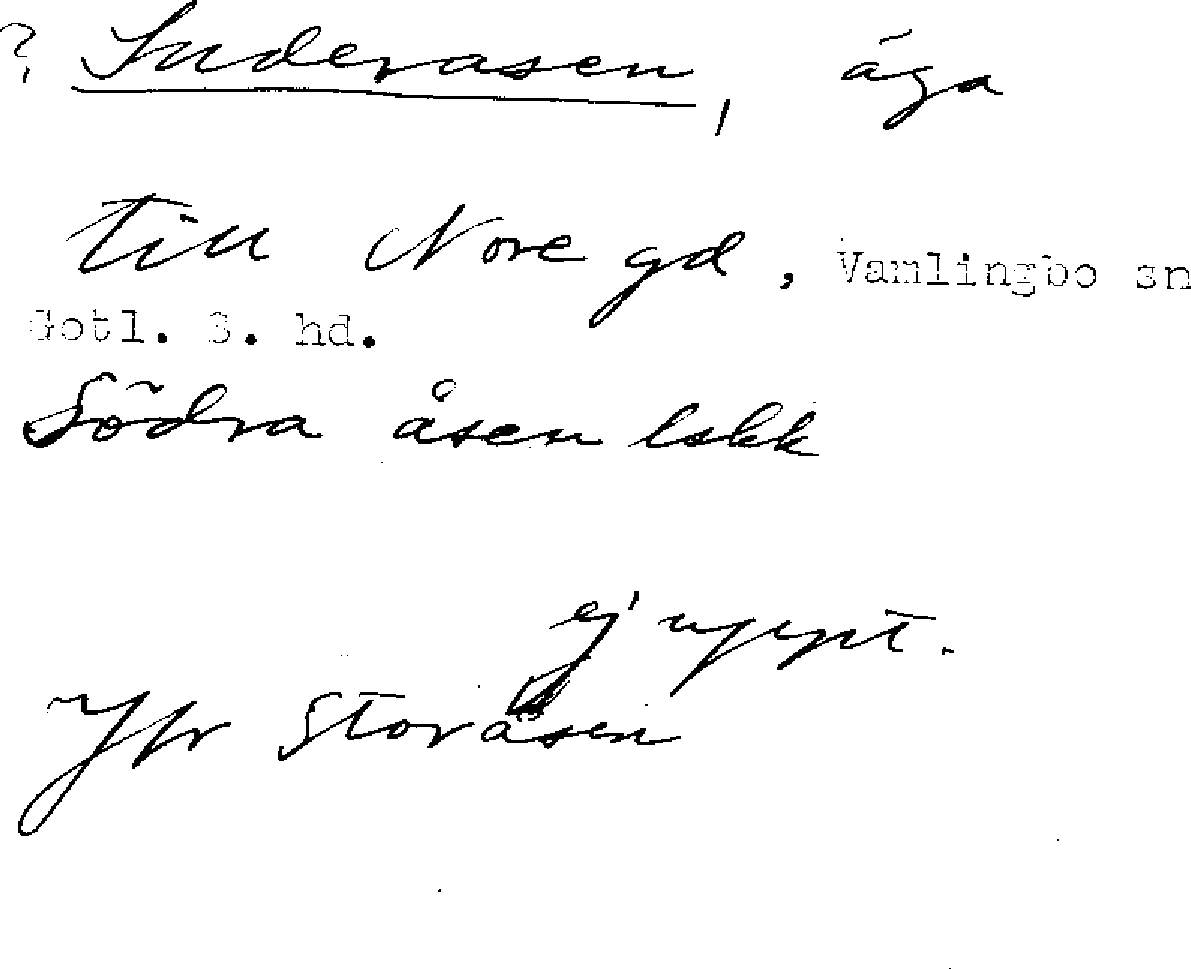 ? Suderasen, äga
till Nore gd, Vamlingbo sn
Gotl. S. hd.
Södra åsen lskk
ej uppt.
Jfr Storåsen